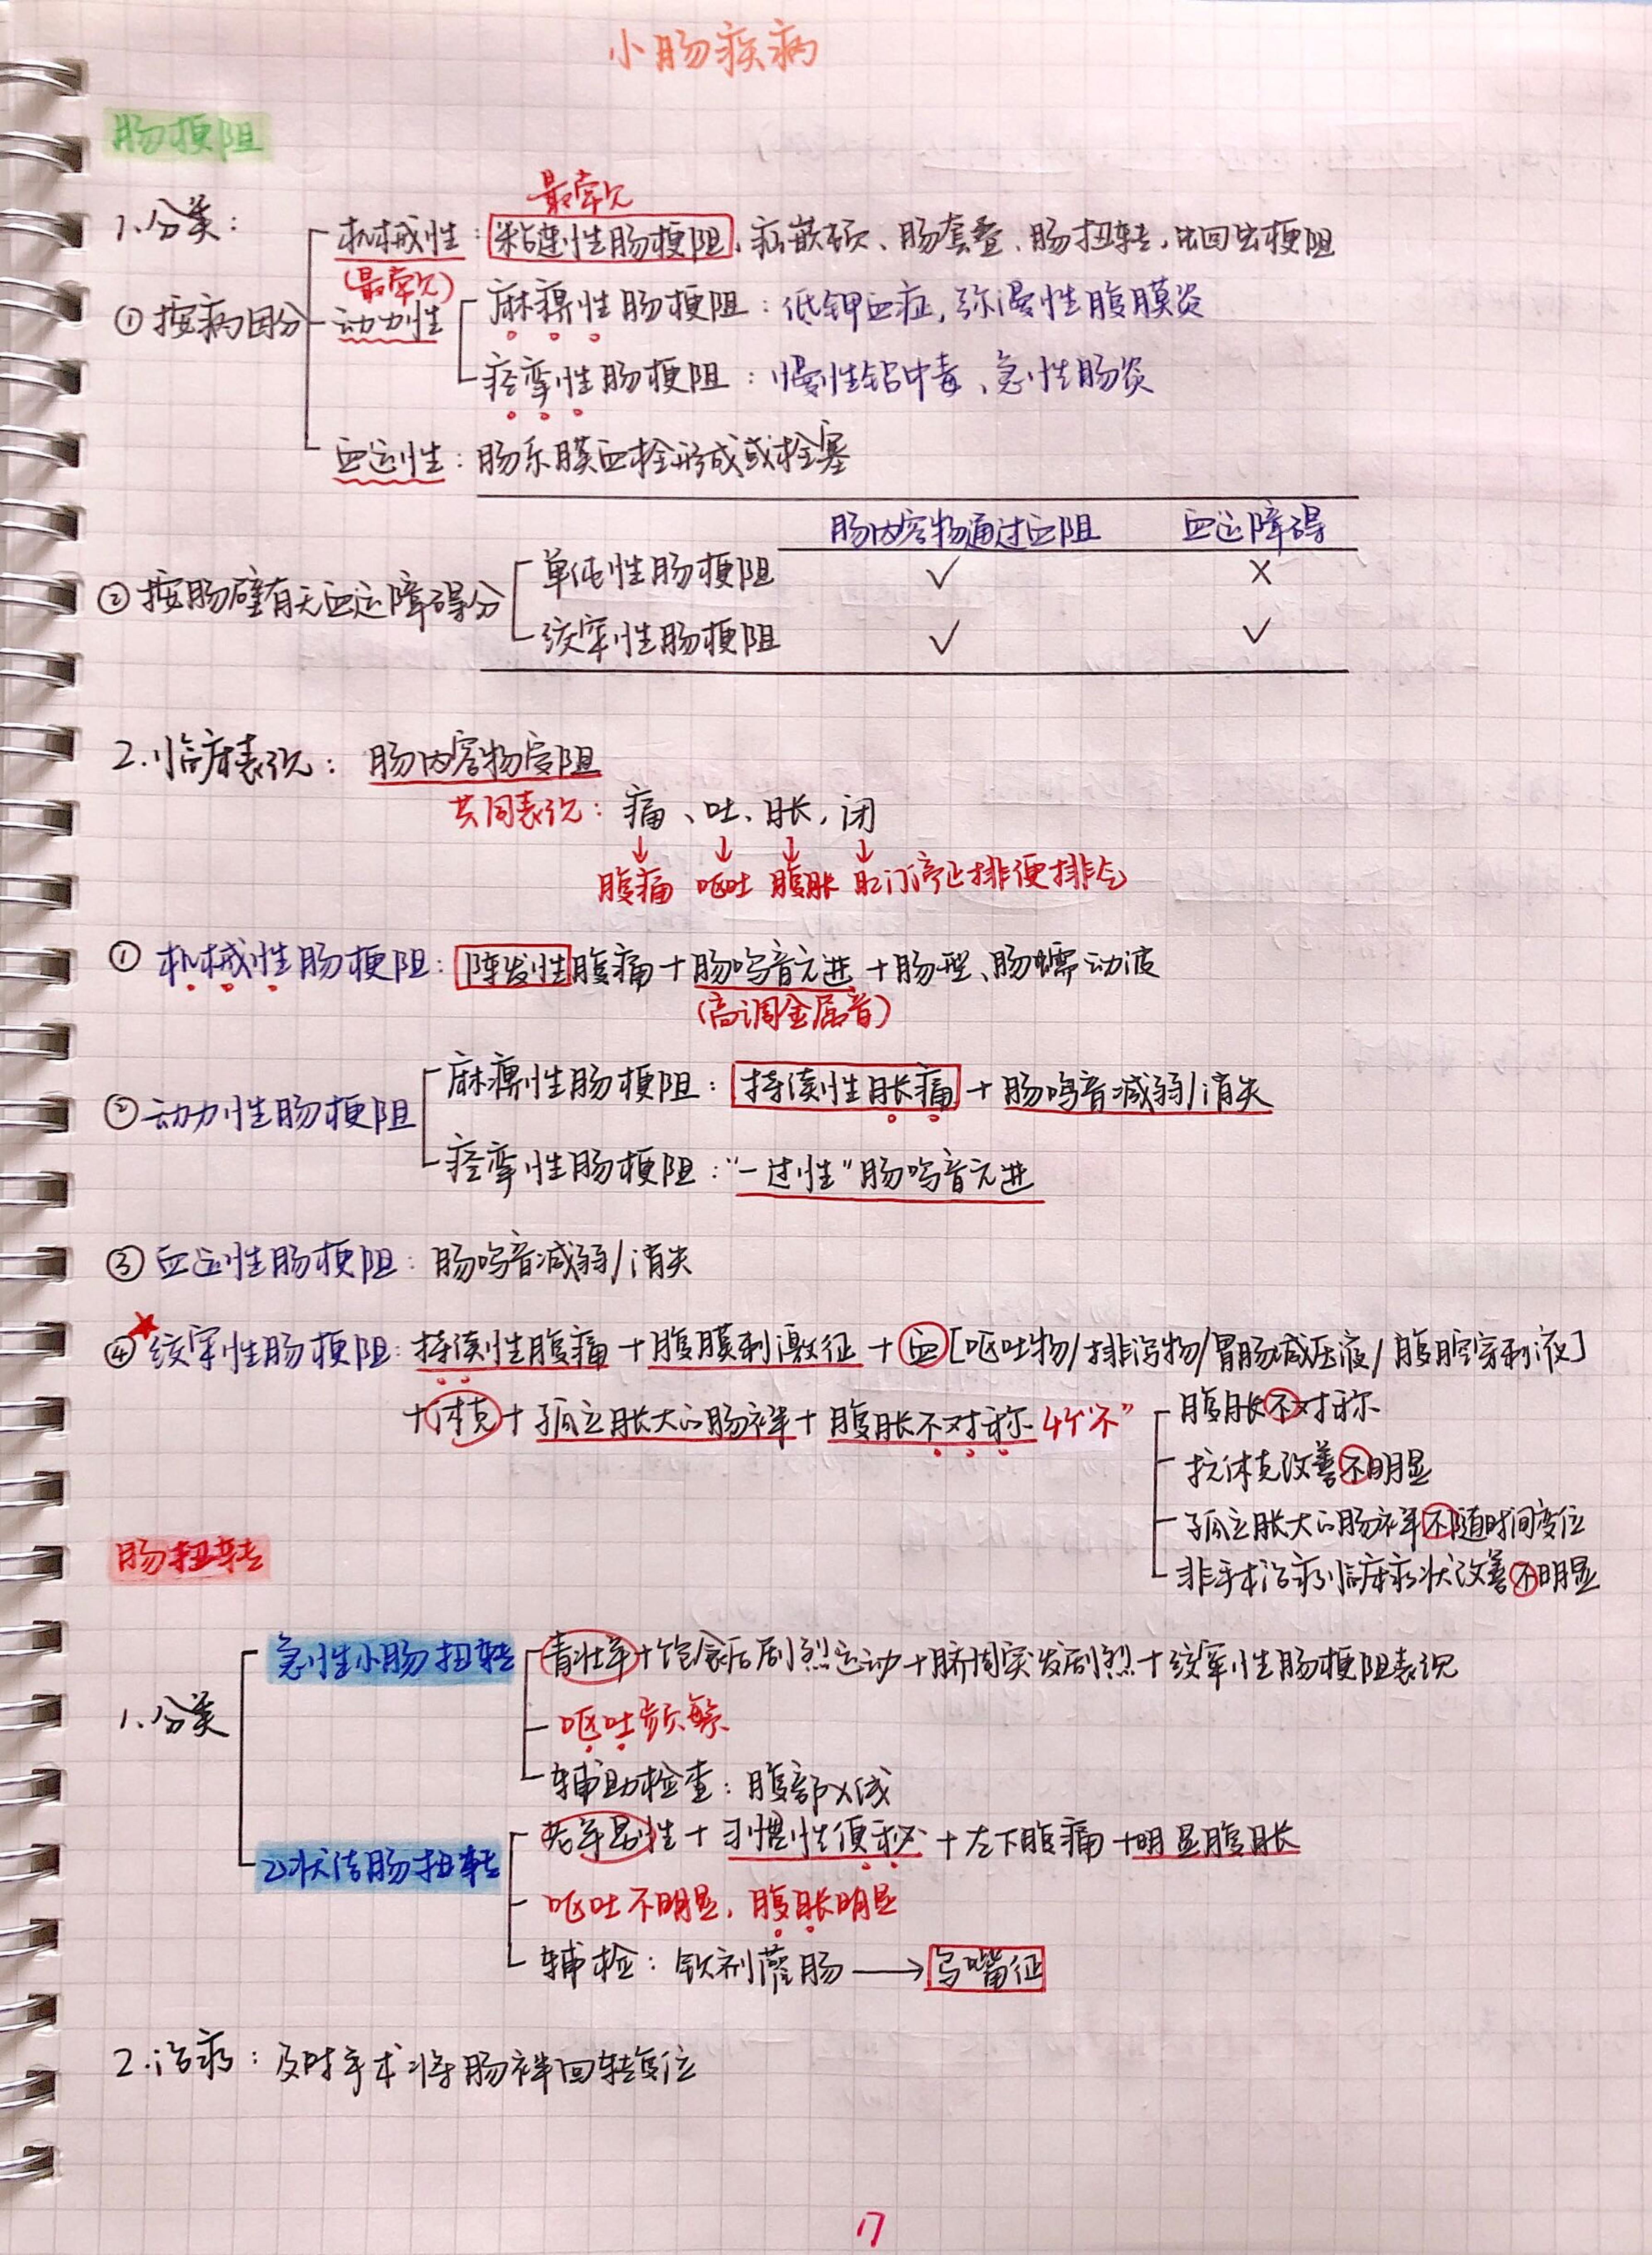 小肠疾病
肠梗阻
最常见
1.分类:
机械性:粘连性肠梗阻、疝嵌顿、肠套叠、肠扭转,蛔虫梗阻
(最常见)
①按病因分
动力性
麻痹性肠梗阻:低钾血症,弥漫性腹膜炎
痉挛性肠梗阻:慢性铅中毒、急性肠炎
血运性:肠系膜血栓形成或栓塞
肠内容物通过受阻 血运障碍
②按肠壁有无血运障碍分
单纯性肠梗阻 ✓ X
绞窄性肠梗阻 ✓ ✓
2.临床表现:肠内容物受阻
共同表现:痛、吐、胀,闭
↓ ↓ ↓ ↓
腹痛 呕吐 腹胀 肛门停止排便排气
①机械性肠梗阻:阵发性腹痛+肠鸣音亢进+肠型、肠蠕动波
(高调金属音)
②动力性肠梗阻
麻痹性肠梗阻:持续性胀痛+肠鸣音减弱/消失
痉挛性肠梗阻:“一过性”肠鸣音亢进
③血运性肠梗阻:肠鸣音减弱/消失
★
④绞窄性肠梗阻:持续性腹痛+腹膜刺激征+血[呕吐物/排泻物/胃肠减压液/腹腔穿刺液]
+休克+孤立胀大的肠袢+腹胀不对称 4个“不”
腹胀不对称
抗休克改善不明显
孤立胀大的肠袢不随时间变位
非手术治疗临床症状改善不明显
肠扭转
1.分类
急性小肠扭转
青壮年+饱食后剧烈运动+脐周突发剧烈+绞窄性肠梗阻表现
呕吐频繁
辅助检查:腹部X线
乙状结肠扭转
老年男性+习惯性便秘+左下腹痛+明显腹胀
呕吐不明显,腹胀明显
辅检:钡剂灌肠→鸟嘴征
2.治疗:及时手术将肠袢回转复位
17